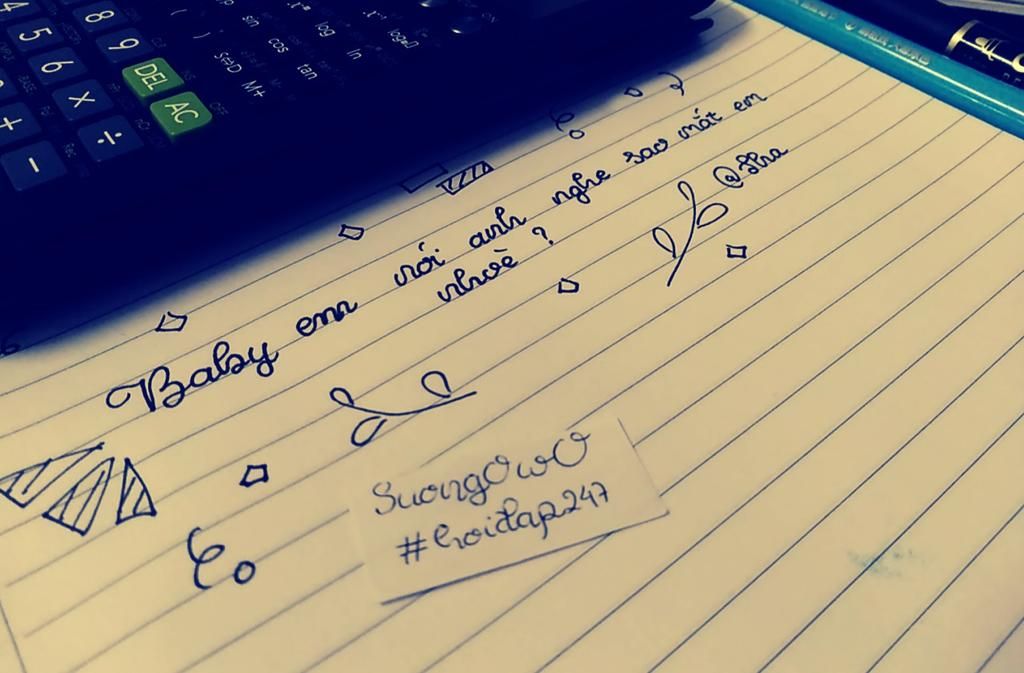 4
5
6
8
9
DEL
AC
×
÷
+
-
sin
cos
tan
log
ln
S⇔D
M+
(
)
Baby em nói anh nghe sao mắt em
nhoè ?
@Tha
SuongOwO
#hoidap247